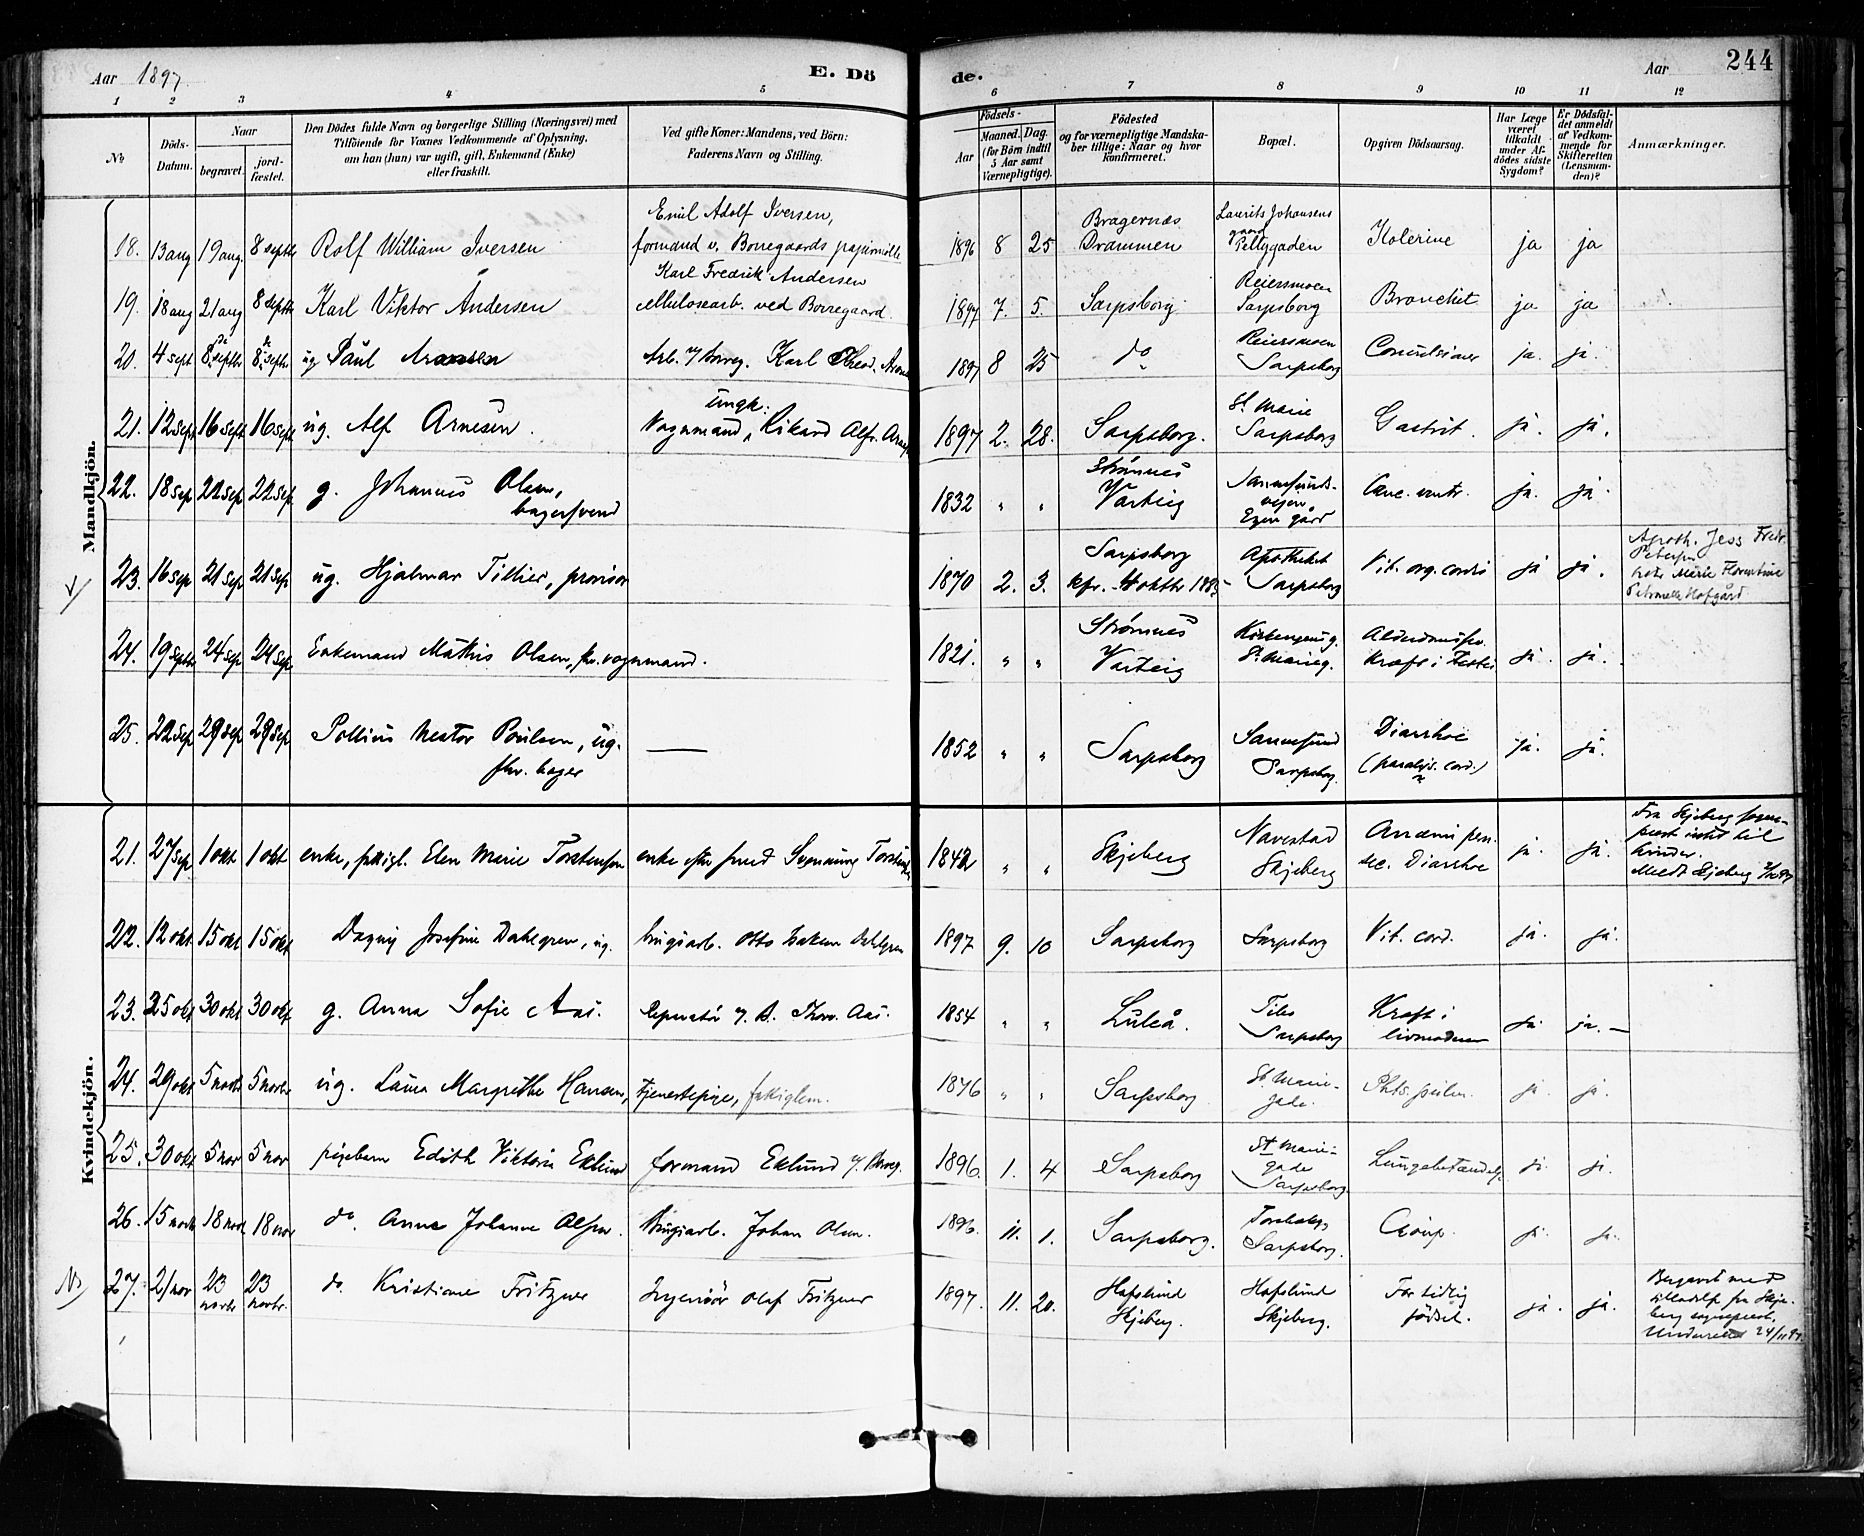 Aar 1897.
E. Dö
de.
Aar
244
1 2 3 4 5 6 7 8 9 10 11 12
No
Döds-Datum.
Naar
begravet.
jord-fæstet.
Den Dödes fulde Navn og borgerlige Stilling (Næringsvei) med
Tilföiende for Voxnes Vedkommende af Oplysning,
om han (hun) var ugift, gift, Enkemand (Enke)
eller fraskilt.
Ved gifte Koner: Mandens, ved Börn:
Faderens Navn og Stilling.
Födsels-
Aar
Maaned. Dag.
(for Börn indtil
5 Aar samt
Værnepligtige).
Födested
og for værnepligtige Mandska-
ber tillige: Naar og hvor
konfirmeret.
Bopæl.
Opgiven Dödsaarsag.
Har Læge
været
tilkaldt
under Af-
dödes sidste
Sygdom?
Er Dödsfal-
det anmeldt
af Vedkom-
mende for
Skifteretten
(Lensman-
den)?
Anmærkninger.
Mandkjön.
18. 13 aug 19 aug. 8 septbr Rolf William Iversen
Emil Adolf Iversen,
formand v. Borregaards papirmølle
1896 8 25
Bragernæs
Drammen
Laurits Johansens
gaard
Pettygaden
Kolerine ja ja
19. 18 aug 21 aug 8 septbr Karl Viktor Andersen
Karl Fredrik Andersen
cellulosearb. ved Borregaard.
1897 7. 5. Sarpsborg
Reiersmoen
Sarpsborg
Bronchit ja ja
20. 4 sept 8. septbr 8. septbr ug Paul Aronsen
Arb. Karl
1897 8 25 do
Reiersmoen
Sarpsborg
Convulsioner ja. ja.
21. 12 sept 16 sept 16 sept ug. Alf Arnesen.
ungk:
Vognmand, Rikard Alfr.
1897 2. 28. Sarpsborg.
St. Marie
Sarpsborg
Gastrit. ja. ja.
22. 18 sep 22 sep 22 sep g. Johannes Olsen,
bagersvend
1832 " "
Strömnes
Varteig
Sannesunds-
vejen
Egen gård
Canc. ventr. ja. ja.
23. 16 sep 21 sep 21 sep ug. Hjalmar Tillier, provisor
1870 2. 3.
Sarpsborg
kfr. 4 oktbr
Apotheket
Sarpsborg
Vit. org. cordis ja ja.
Apoth. Jess Fredr.
Petersen
Marie Florentine
Petronelle Hofgård
24. 19 septbr 24 sep 24 sep Enkemand Mathis Olsen, fhv. vognmand.
1821. " "
Strömnes
Varteig
St. Marieg.
ja. ja.
25. 22 sep 29 sep 29 sep Pollius Nestor Poulsen, ug.
fhv. bager
—
1852 " " Sarpsborg
Sannesund
Sarpsborg.
Diarrhoe
(paralys. cord.)
ja. ja.
Kvindekjön.
21. 27 sep 1 okt 1 okt enke, fattigl. Elen Marie Torstensen
enke efter
1842 " " Skjeberg
Navestad
Skjeberg
Anæmi pern.
sec. Diarrhoe
ja. ja.
Fra Skjeberg sogne-
prest intet til
hinder.
Medt Skjeberg
22. 12 okt 15 okt 15 okt Dagny Josefine Dahlgren, ug.
brugsarb. Otto Dahlgren
1897 9. 10 Sarpsborg Sarpsborg Vit. cord. ja. ja.
23. 25 okt 30 okt 30 okt g. Anna Sofie Aas.
Reparatör Thorv. Aas.
1854 " " Luleå.
Tilos
Sarpsborg
Kræft i
livmoderen
ja ja. —
24. 29 okt 5 novbr 5 novbr ug. Laura Margrethe Hansen, tjenestepige, fattiglem.
1846 " " Sarpsborg
St. Marie-
gade.
Phts. pulm. ja. ja.
25. 30 okt 5 nov 5 nov pigebarn Edith Viktoria Eklund formand Eklund
1896. 1. 4 Sarpsborg
St. Marie-
gade
Sarpsborg
Lungebetændelse ja. ja.
26. 15 novbr 18 nov 18 nov do. Anna Johanne Olsen
Brugsarb. Johan Olsen.
1896. 11. 1. Sarpsborg.
Sarpsborg.
Croup. ja. ja.
27. 21 nov 23 novbr 23 novbr. do Kristiane Fritzner Ingeniör Olaf Fritzner
1897. 11. 20.
Hafslund
Skjeberg.
Hafslund
Skjeberg.
For tidlig
födsel.
ja. ja.
Begravet med
tilladelse fra Skje-
berg sogneprest.
Underrettet 24/11 97.